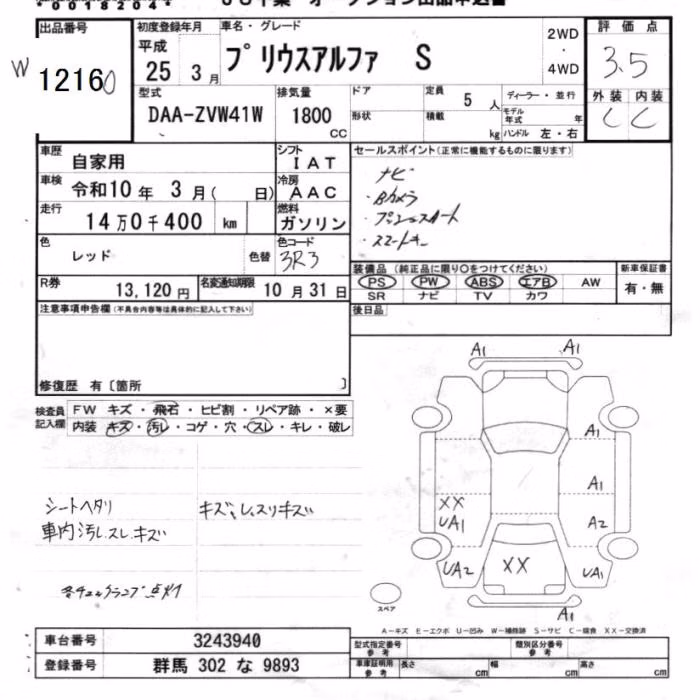 00182004
出品番号 初度登録年月 車名・グレード 2WD・4WD 評価点
W 12160 平成25 3月 プリウスアルファ S 3.5
外装 内装
C C
型式 排気量 ドア 定員 5人 ディーラー・並行
DAA-ZVW41W 1800cc 形状 積載 kg モデル年式 年
ハンドル 左・右
車歴 自家用 シフト IAT セールスポイント(正常に機能するものに限ります)
車検 令和10年 3月( 日) 冷房 AAC
走行 14万0千400 km 燃料 ガソリン
ナビ
・Bカメラ
・プッシュスタート
・スマートキー
色 レッド 色替 色コード 3R3
装備品 (純正品に限り○をつけてください) 新車保証書
PS PW ABS エアB AW 有・無
SR ナビ TV カワ
R券 13,120円 名変通知期限 10月31日
注意事項申告欄(不具合内容等は具体的に記入して下さい) 後日品
修復歴 有〔箇所 〕
検査員記入欄 FW キズ・飛石・ヒビ割・リペア跡・×要
内装 キズ・汚レ・コゲ・穴・スレ・キレ・破レ
シートヘタリ
車内汚レスレキズ
A1 A1
A1
A1
XX
UA1 A2
UA2 XX UA1
A1
スペア
A−キズ E−エクボ U−凹み W−補修跡 S−サビ C−腐食 XX−交換済
車台番号 3243940 型式指定番号 参考 類別区分番号 参考
登録番号 群馬 302 な 9893 車庫証明用 参考 長さ cm 幅 cm 高さ cm